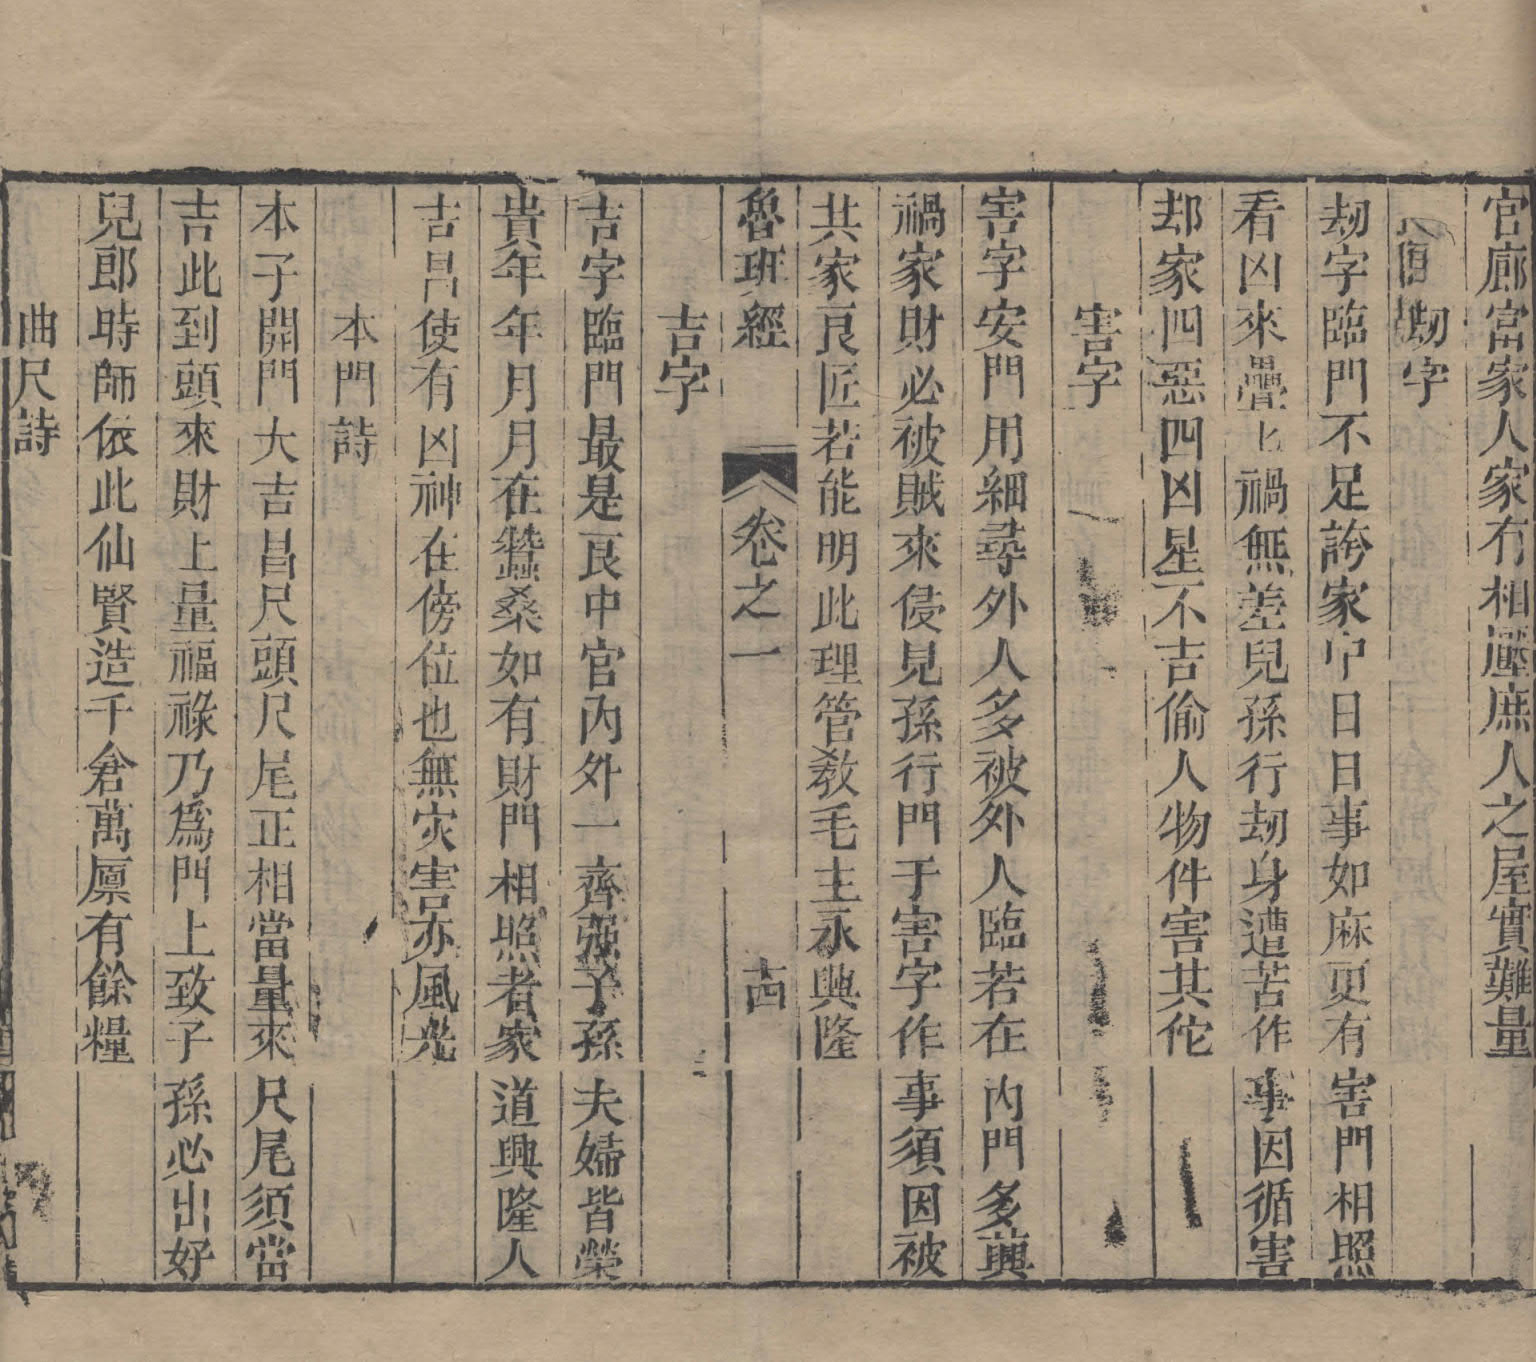 官廊當家人家有相壓庶人之屋實難量
劫字
劫字臨門不足誇家中日日事如麻更有害門相照
看凶來疊上禍無差兒孫行劫身遭苦作事因循害
却家四惡四凶星不吉偷人物件害其佗
害字
害字安門用細尋外人多被外人臨若在內門多興
禍家財必被賊來侵兒孫行門于害字作事須因被
其家良匠若能明此理管教毛主永興隆
魯班經 卷之一 十四
吉字
吉字臨門最是良中官內外一齊強子孫夫婦皆榮
貴年年月月在蠶桑如有財門相照者家道興隆人
吉昌使有凶神在傍位也無灾害亦風光
本門詩
本子開門大吉昌尺頭尺尾正相當量來尺尾須當
吉此到頭來財上量福祿乃為門上致子孫必出好
兒郎時師依此仙賢造千倉萬廪有餘糧
曲尺詩